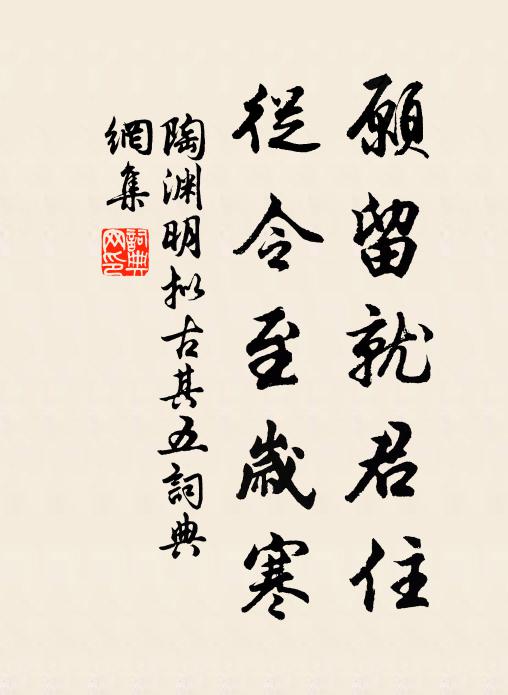 願留就君住
從令至歲寒
陶渊明拟古其五詞典
網集
詞典
网印